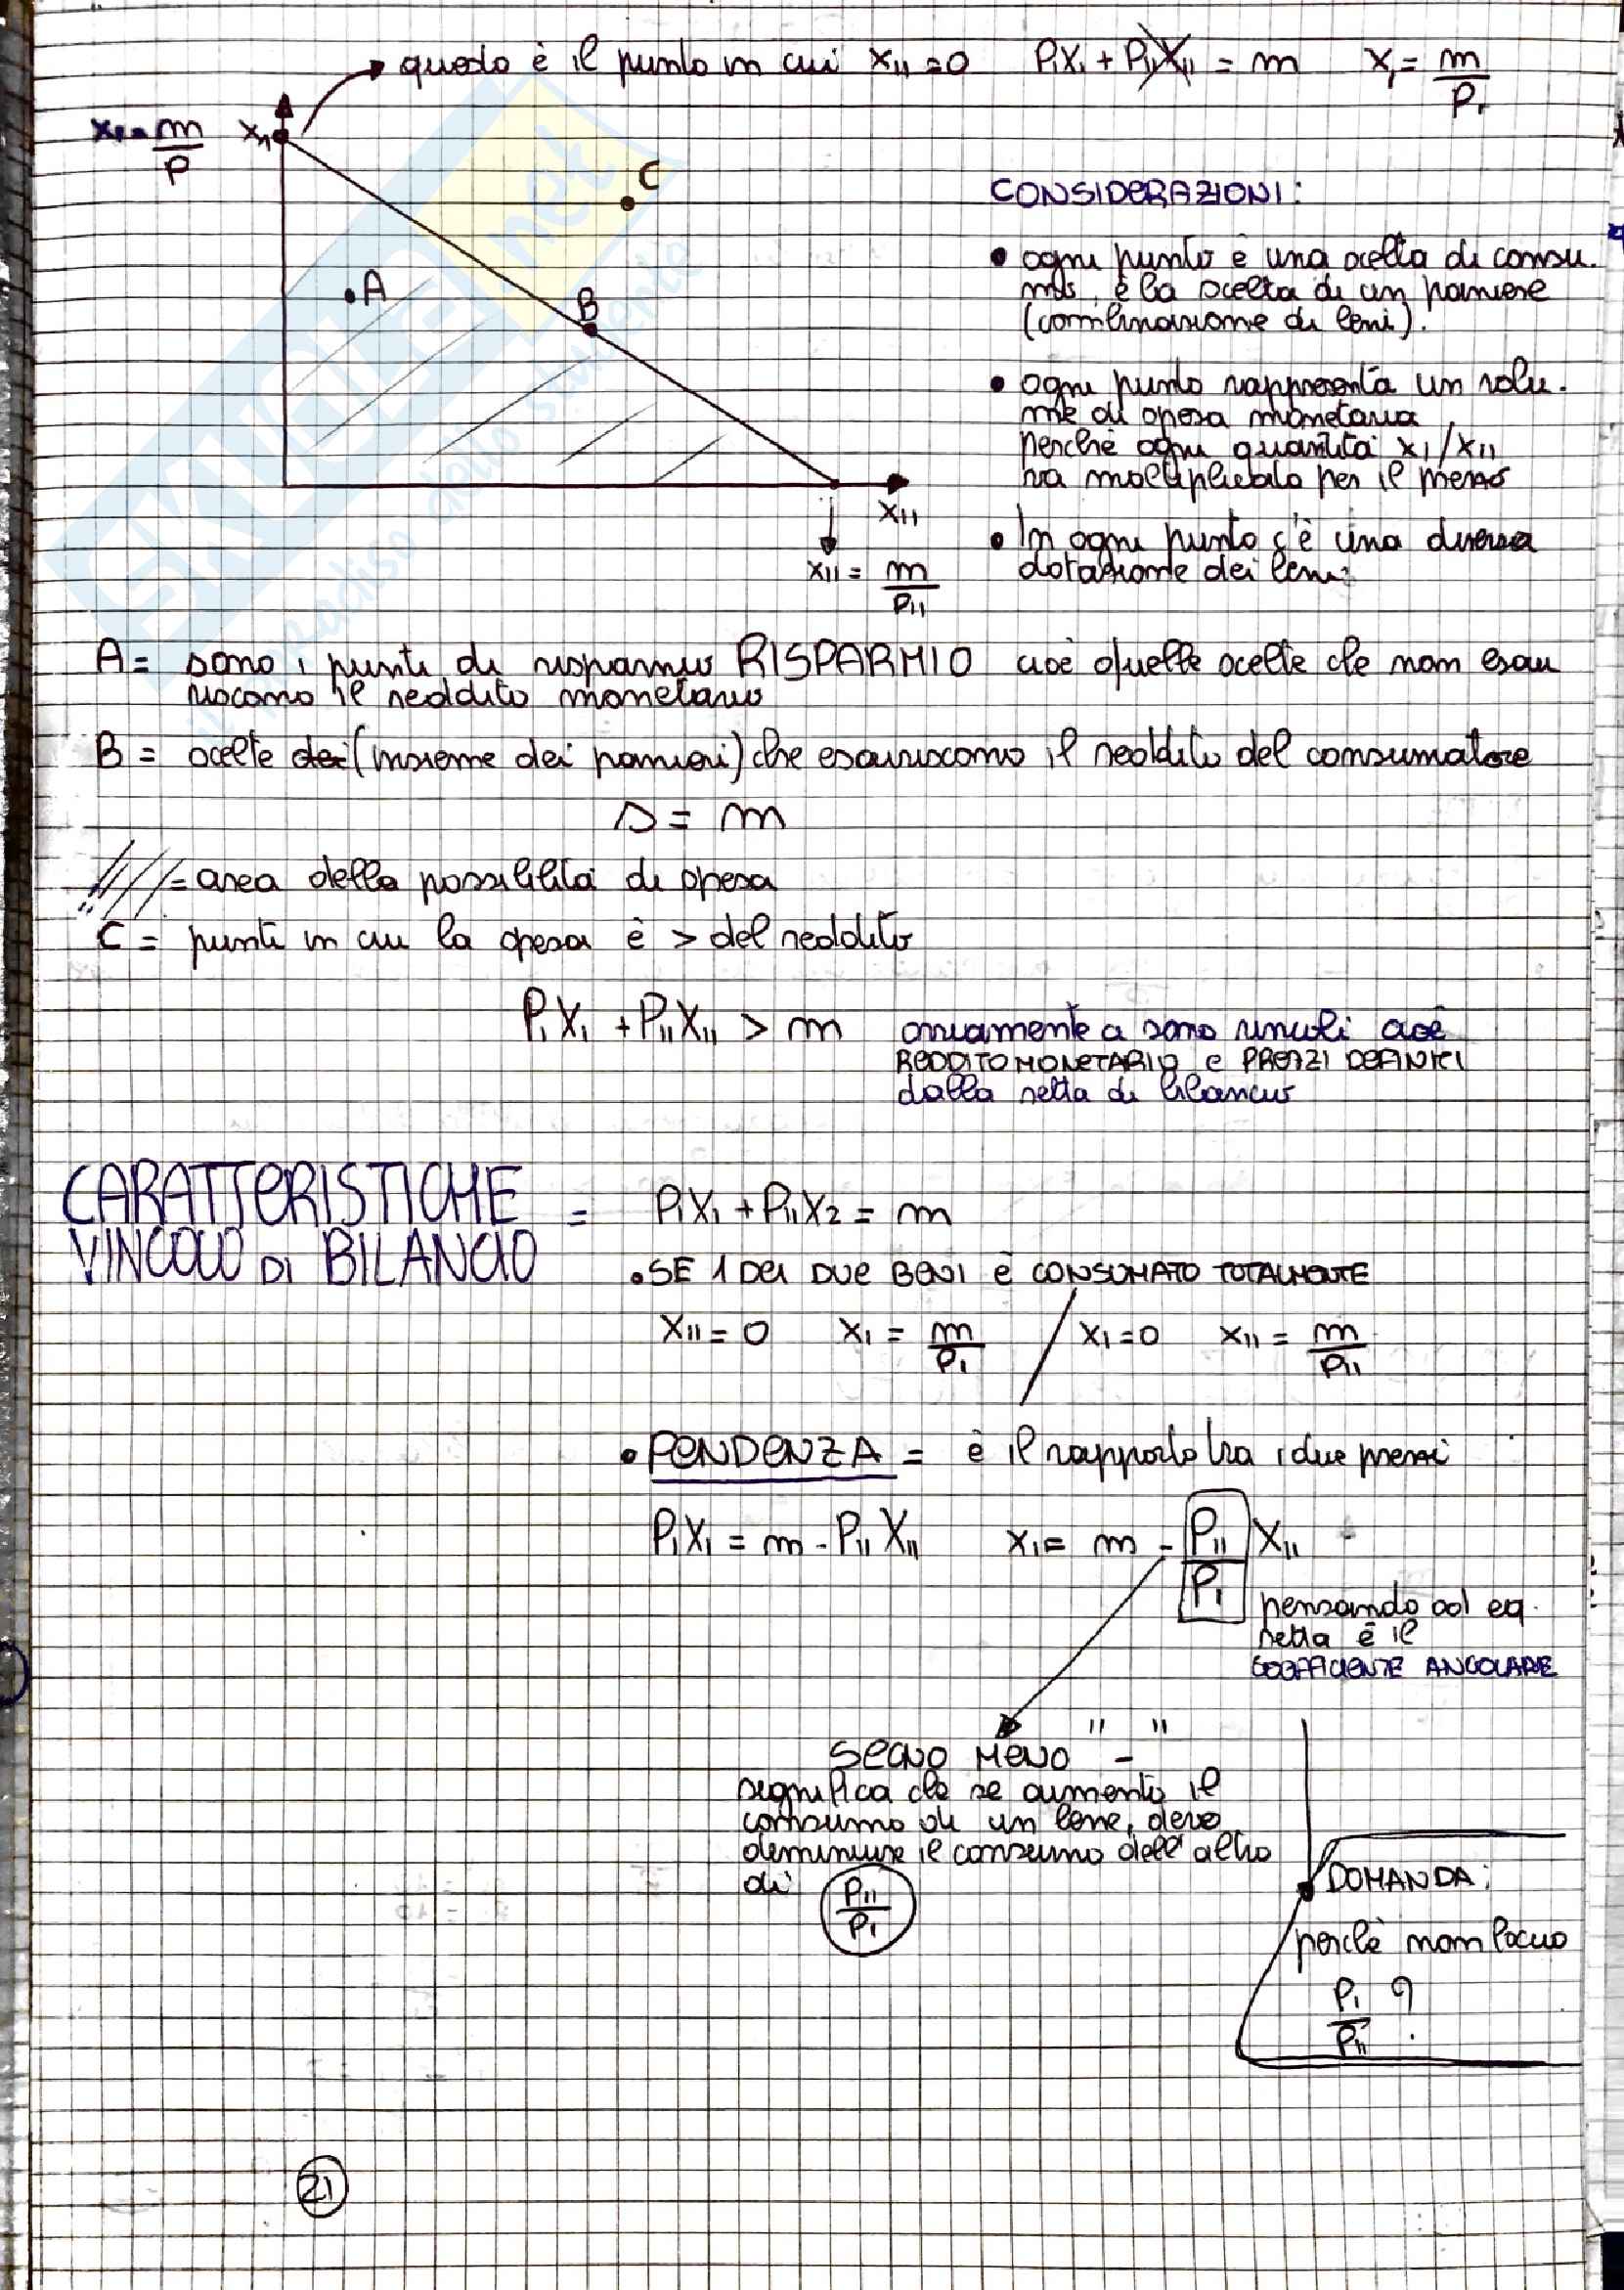 questo è il punto in cui x₁₁=0 P₁X₁ + P₁₁X₁₁ = m X₁ = m/P₁
x₁ = m/P x₁
C
A
B
x₁₁
x₁₁ = m/P₁₁
CONSIDERAZIONI:
• ogni punto è una scelta di consu.
mo, è la scelta di un paniere
(combinazione di beni).
• ogni punto rappresenta un volu.
me di spesa monetaria
perchè ogni quantità x₁/x₁₁
va moltiplicata per il prezzo
• In ogni punto c'è una diversa
dotazione dei beni
A = sono i punti di risparmio RISPARMIO cioè quelle scelte che non esau
riscono il reddito monetario
B = scelte dei (insieme dei panieri) che esauriscono il reddito del consumatore
s = m
//// = area della possibilità di spesa
C = punti in cui la spesa è > del reddito
P₁X₁ + P₁₁X₁₁ > m ovviamente ci sono vincoli cioè
REDDITO MONETARIO e PREZZI DEFINITI
dalla retta di bilancio
CARATTERISTICHE = P₁X₁ + P₁₁X₂ = m
VINCOLO DI BILANCIO
• SE 1 DEI DUE BENI È CONSUMATO TOTALMENTE
x₁₁ = 0 x₁ = m/P₁ / x₁ = 0 x₁₁ = m/P₁₁
• PENDENZA = è il rapporto tra i due prezzi
P₁X₁ = m - P₁₁X₁₁ x₁ = m - P₁₁/P₁ X₁₁
pensando ad eq.
retta è il
COEFFICIENTE ANGOLARE
SEGNO MENO "-"
significa che se aumento il
consumo di un bene, devo
deminuire il consumo dell'altro
di P₁₁/P₁
DOMANDA:
perchè non faccio
P₁/P₁₁ ?
21
SKUOLA.net
il paradiso dello studente